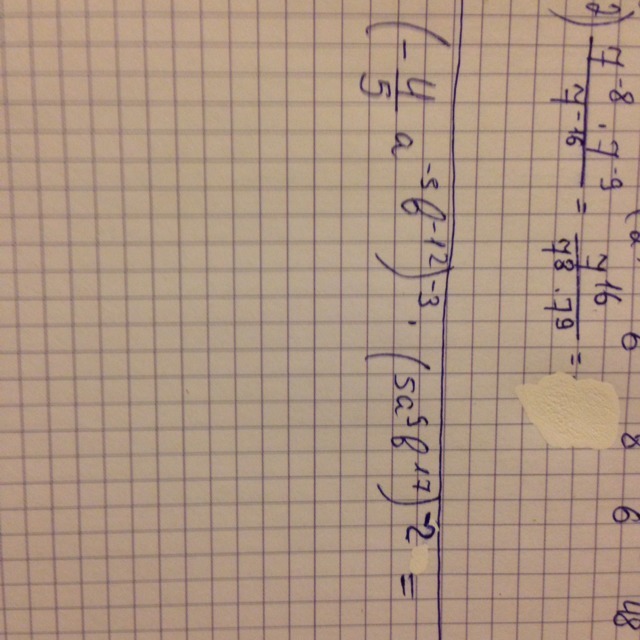 7^-8 · 7^-9 / 7^-16 = 7^16 / 7^8 · 7^9 =
(-4/5 a^-5 b^-12)^-3 · (5a^5 b^17)^-2 =